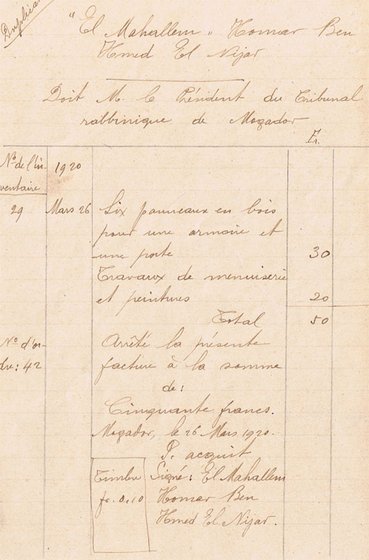 Duplicata
"El Mahallem" Homar Ben
Hmed El Nijar
Doit M. le Président du Tribunal
rabbinique de Mogador
Fr.
No de l'in-
ventaire
1920
29 Mars 26 Six panneaux en bois
pour une armoire et
une porte 30
Travaux de menuiserie
et peintures 20
Total 50
No d'or-
dre: 42
Arrêté la présente
facture à la somme
de:
Cinquante francs.
Mogador, le 26 Mars 1920.
P. acquit
Timbre
fr. 0.10
Signé: El Mahallem
Homar Ben
Hmed El Nijar.